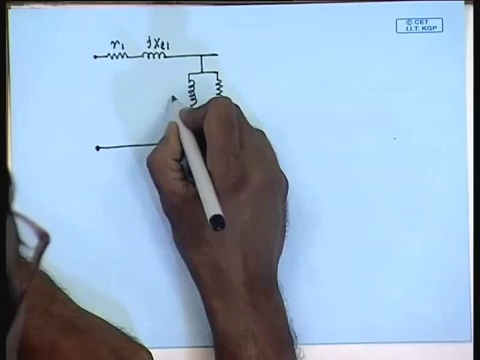 © CET
I.I.T. KGP
r₁ jxℓ₁